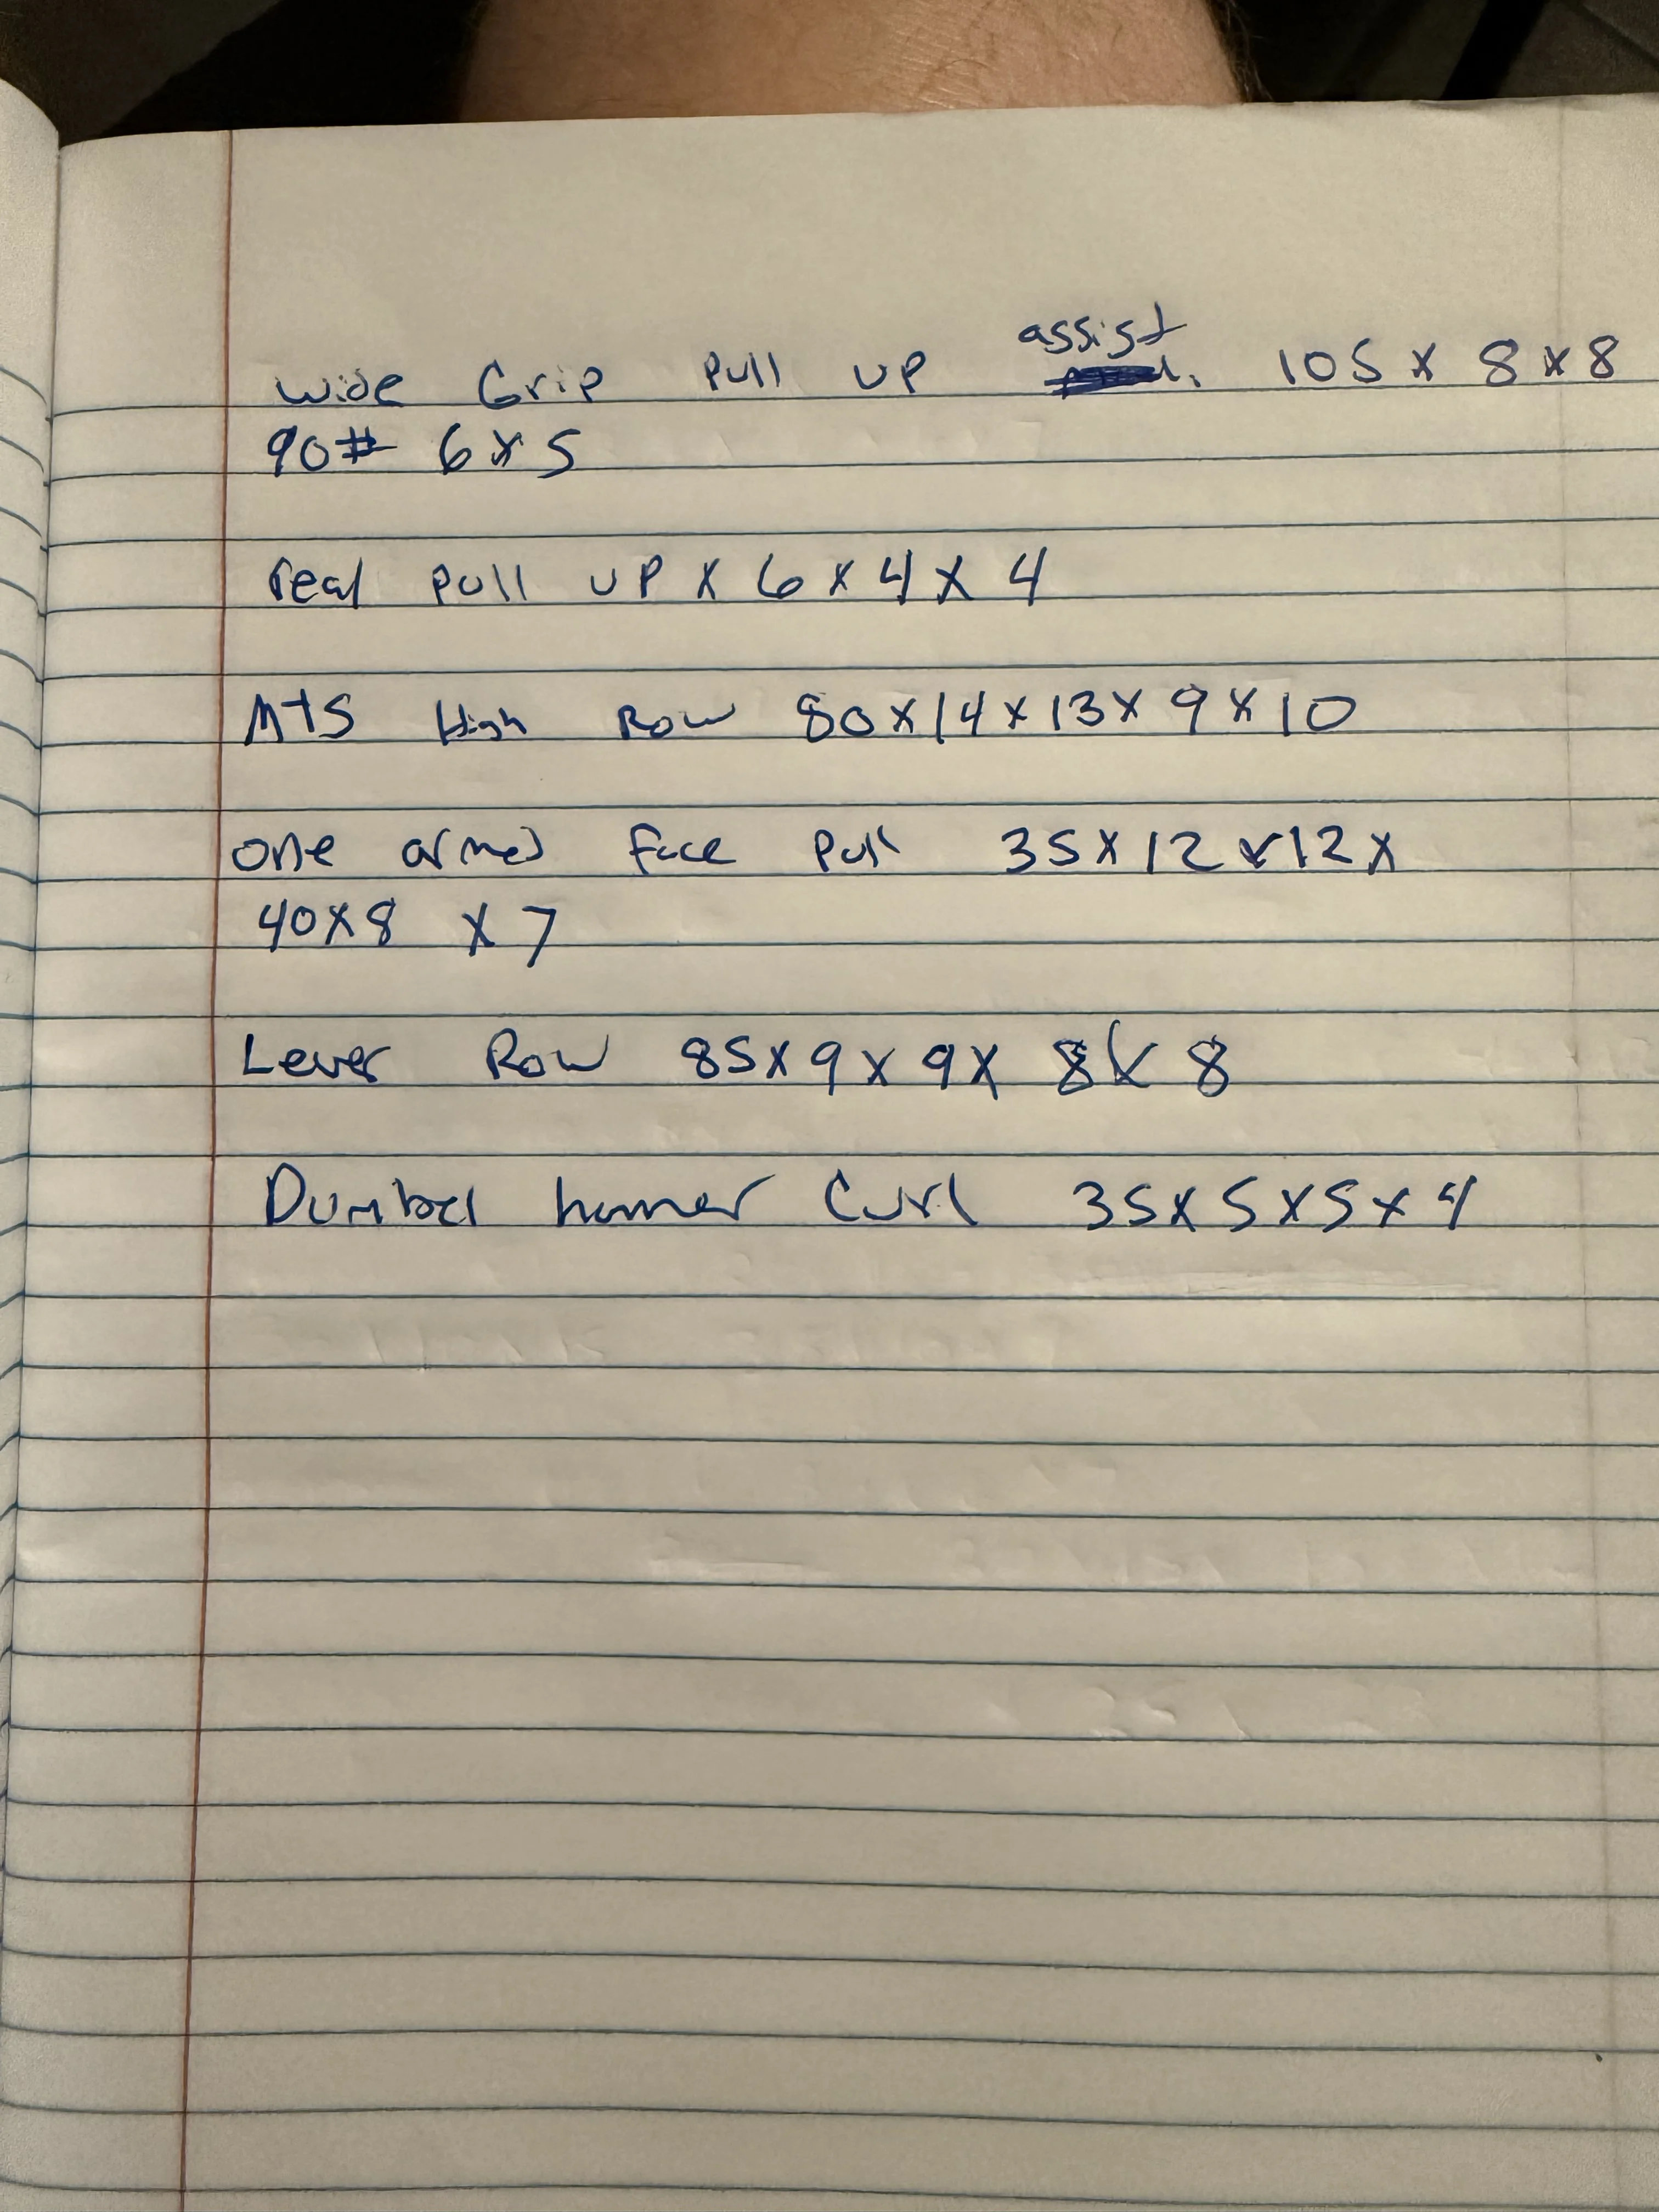 Wide Grip Pull UP assist 105 x 8 x 8
90# 6 x 5
real pull up x 6 x 4 x 4
MTS High Row 80 x 14 x 13 x 9 x 10
one armed Face Pull 35 x 12 x 12 x
40 x 8 x 7
Lever Row 85 x 9 x 9 x 8 x 8
Dumbel hamer Curl 35 x 5 x 5 x 4